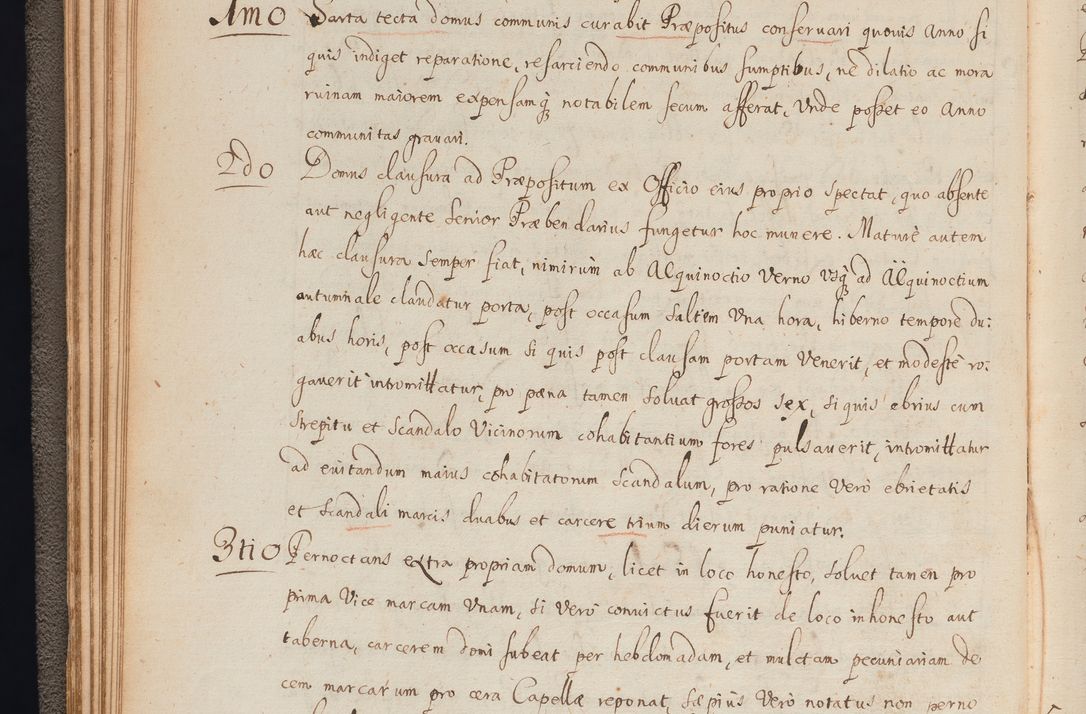 1mo Sarta tecta domus communis curabit Præpositus conseruari quouis Anno si
quis indiget reparatione, resarciendo communibus sumptibus, ne dilatio ac mora
ruinam maiorem expensamq3 notabilem secum afferat, Vnde posset eo Anno
communitas grauari.
2do Domus clausura ad Præpositum ex Officio eius proprio spectat, quo absente
aut negligente Senior Præbendarius fungetur hoc munere. Maturè autem
hæc clausura semper fiat, nimirùm ab Æquinoctio Verno Vsq3 ad Æquinoctium
autumnale claudatur porta, post occasum saltem Vna hora, hiberno tempore du:
abus horis, post occasum si quis post clausam portam Venerit, et modestè ro:
gauerit intromittatur, pro pæna tamen soluat grossos sex, si quis ebrius cum
strepitu et scandalo Vicinorum cohabitantium fores pulsauerit, intromittatur
ad euitandum maius cohabitatorum scandalum, pro ratione Verò ebrietatis
et scandali marcis duabus et carcere trium dierum puniatur.
3tio Pernoctans extra propriam domum, licet in loco honesto, soluet tamen pro
prima Vice marcam Vnam, si Verò conuictus fuerit de loco inhonesto aut
taberna, carcerem domi subeat per hebdomadam, et mulctam pecuniariam de
cem marcarum pro cera Capellæ reponat, sæpius Verò notatus non perno